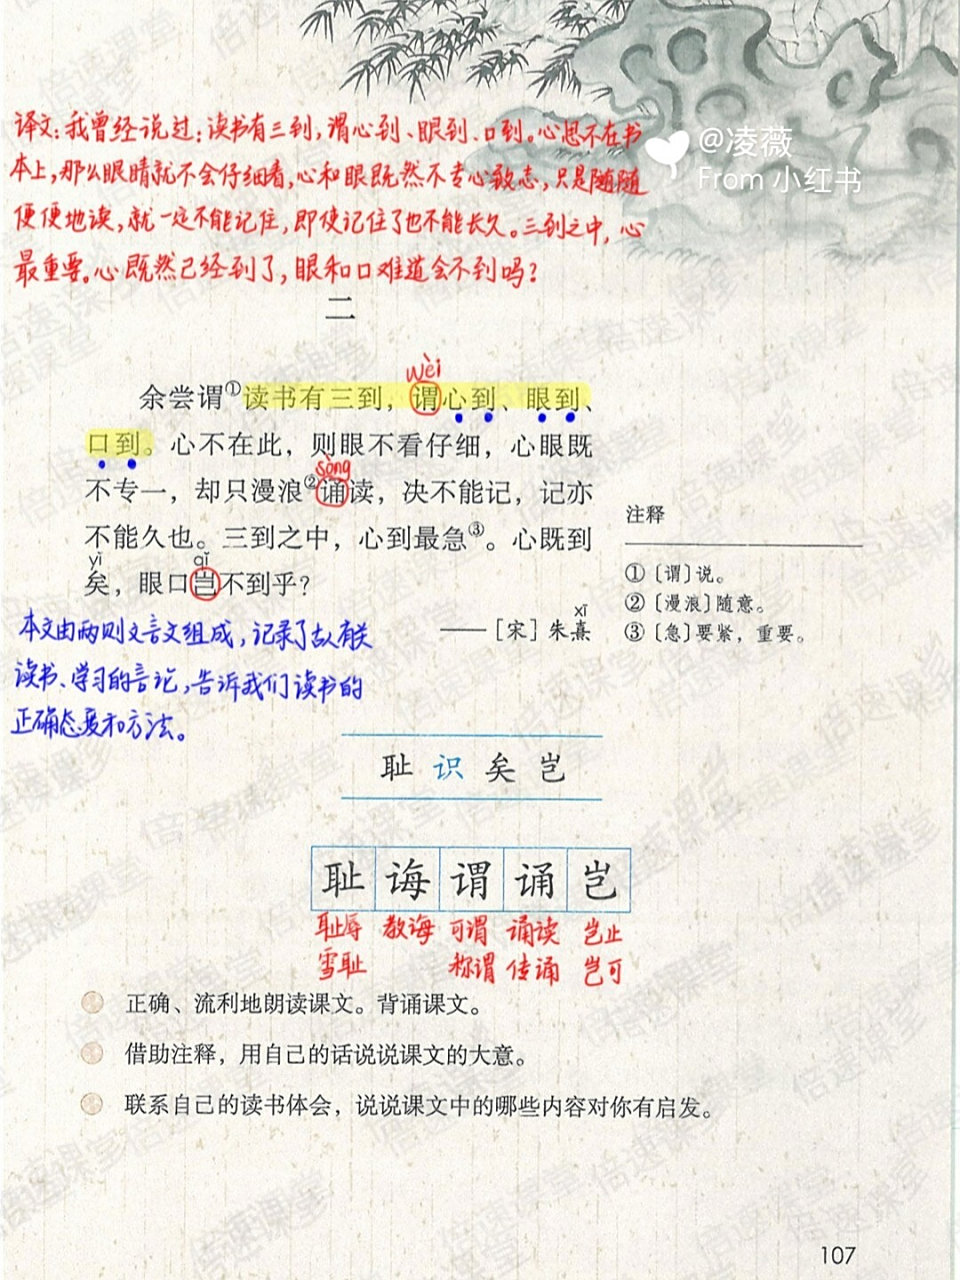 译文:我曾经说过:读书有三到,谓心到、眼到、口到。心思不在书
本上,那么眼睛就不会仔细看,心和眼既然不专心致志,只是随随
便便地读,就一定不能记住,即使记住了也不能长久。三到之中,心
最重要。心既然已经到了,眼和口难道会不到吗?
@凌薇
From 小红书
二
wèi
余尝谓①读书有三到,谓心到、眼到、
口到。心不在此,则眼不看仔细,心眼既
sòng
不专一,却只漫浪②诵读,决不能记,记亦
不能久也。三到之中,心到最急③。心既到
yǐ qǐ
矣,眼口岂不到乎?
xī
——[宋]朱熹
注释
①〔谓〕说。
②〔漫浪〕随意。
③〔急〕要紧,重要。
本文由两则文言文组成,记录了古人有关
读书、学习的言论,告诉我们读书的
正确态度和方法。
耻 识 矣 岂
耻 诲 谓 诵 岂
耻辱 教诲 可谓 诵读 岂止
雪耻 称谓 传诵 岂可
正确、流利地朗读课文。背诵课文。
借助注释,用自己的话说说课文的大意。
联系自己的读书体会,说说课文中的哪些内容对你有启发。
107
倍速课堂